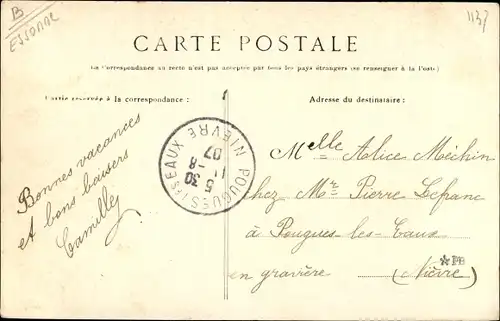 B
ESSONNE
1137
CARTE POSTALE
La Correspondance au recto n'est pas acceptée par tous les pays étrangers (se renseigner à la Poste)
Partie réservée à la correspondance :
Adresse du destinataire :
Bonnes vacances
et bons baisers
Camille
POUGUES-LES-EAUX NIEVRE
5 30
11 -8
07
Melle Alice Méchin
chez Mr Pierre Lefranc
à Pougues-les-Eaux
en gravière (Nièvre)